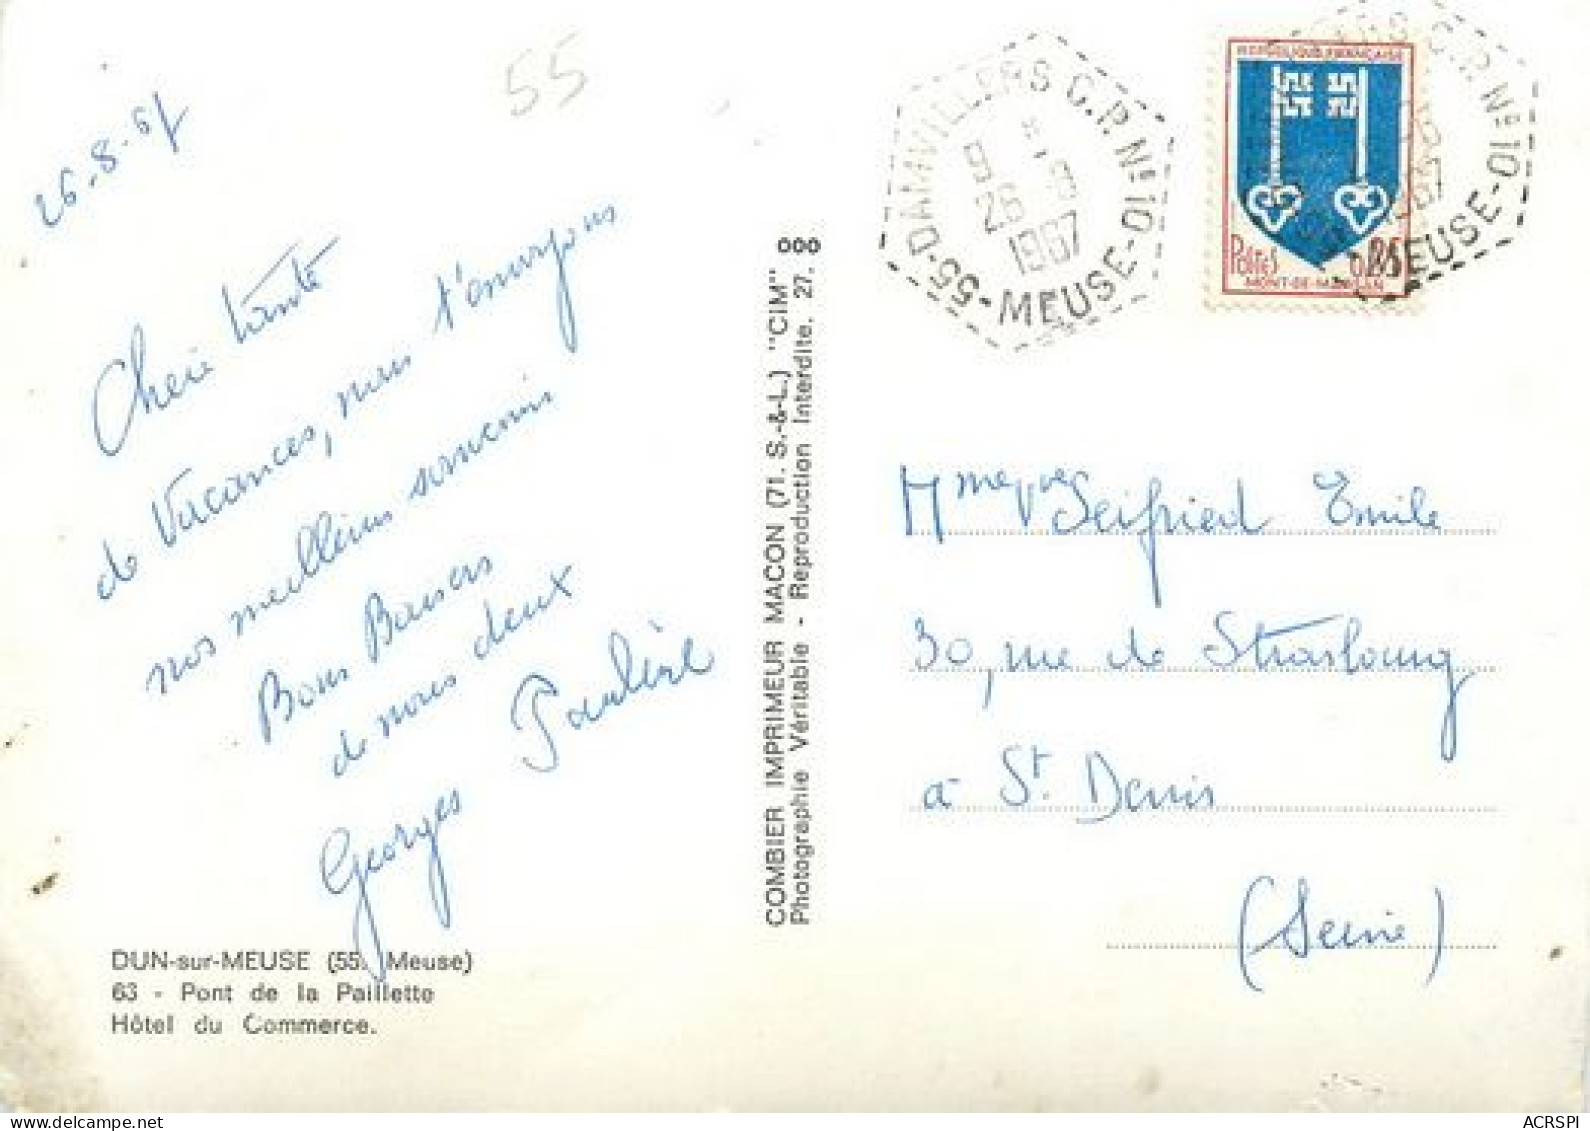 55
26-8-67
Chère Tante
de Vacances, nous t'envoyons
nos meilleurs souvenirs
Bons Baisers
de nous deux
Georges Paulère
DUN-sur-MEUSE (55. Meuse)
63 - Pont de la Paillette
Hôtel du Commerce.
COMBIER IMPRIMEUR MACON (71. S.-&-L.) "CIM"
Photographie Véritable - Reproduction Interdite. 27. 000
55-DAMVILLERS C.P. Nº 01
26-8
1967
MEUSE
REPUBLIQUE FRANÇAISE
POSTES
MONT-DE-MARSAN
C.P. Nº 01
1967
MEUSE
Mme Seifried Emile
30, rue de Strasbourg
à St. Denis
(Seine)
ACRSPI